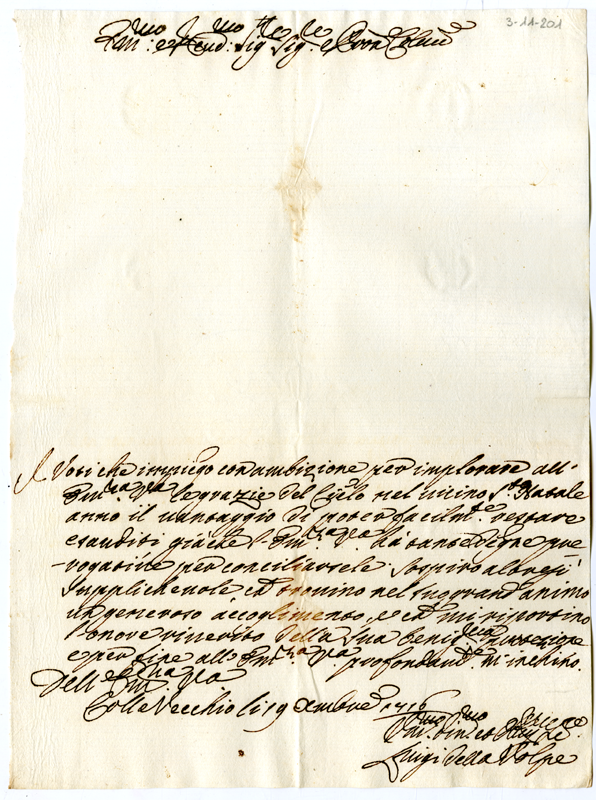 3-11-201
Em:mo e Reud:mo Sig Sig:re e Pron Colmo
I Voti che impiego con ambizione per implorare all'
Em:za V:ra le grazie del Cielo nel vicino S:to Natale
anno il vantaggio di poter facilm:te restare
esauditi giache l'Em:za V:ra hà tante degne pre
rogative per conciliarsele. Sospiro altresì
supplichevole ch' trovino nel suo grand' animo
un generoso accoglimento, e ch' mi riportino
l'onore riverito della sua benig:ma protezione
e per fine all'Em:za V:ra profondam:te m'inchino.
Dell'Em:za V:ra
Colle Vecchio li 19 Xmbre 1716
Um:mo Dev:mo et
Luigi della Volpe